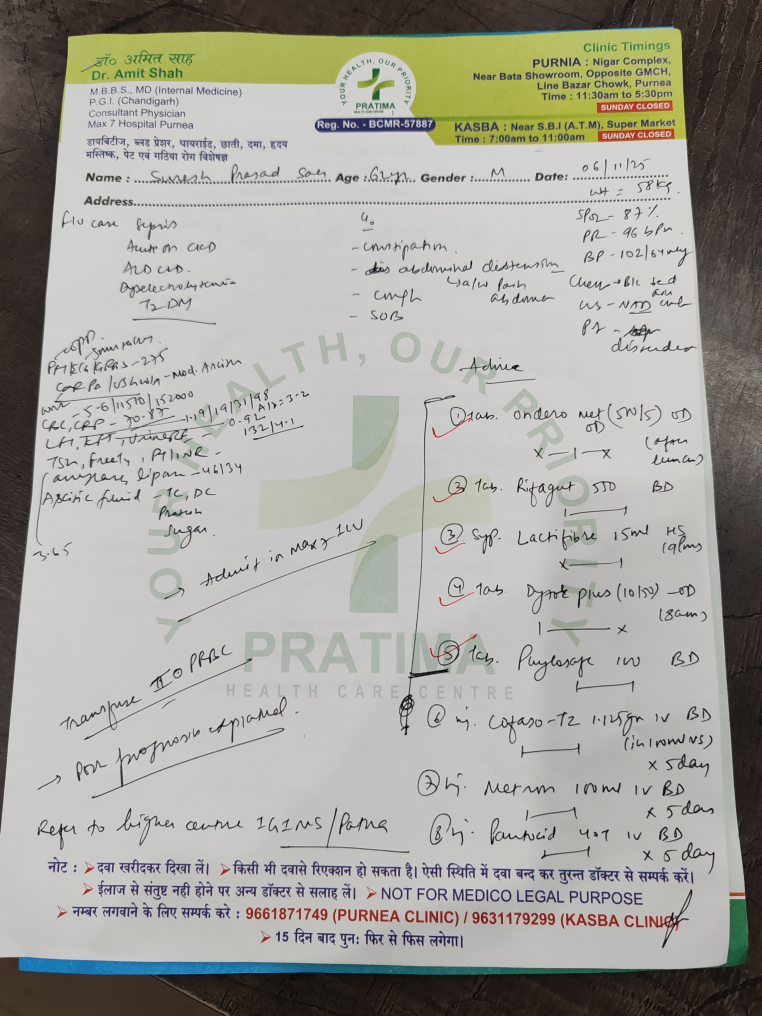 डॉ० अमित साह
Dr. Amit Shah
M.B.B.S., MD (Internal Medicine)
P.G.I. (Chandigarh)
Consultant Physician
Max 7 Hospital Purnea
डायबिटीज, ब्लड प्रेशर, थायराईड, छाती, दमा, हृदय
मस्तिष्क, पेट एवं गठिया रोग विशेषज्ञ
YOUR HEALTH, OUR PRIORITY
PRATIMA
HEALTH CARE CENTRE
Reg. No. - BCMR-57887
Clinic Timings
PURNIA : Nigar Complex,
Near Bata Showroom, Opposite GMCH,
Line Bazar Chowk, Purnea
Time : 11:30am to 5:30pm
SUNDAY CLOSED
KASBA : Near S.B.I (A.T.M), Super Market
Time : 7:00am to 11:00am SUNDAY CLOSED
Name : Suresh Prasad Age : Gender : M Date: 06/11/25
Address
wt = 58kg
SPO2 - 87%
PR - 96 bpm
BP - 102/64
F/U case sepsis
Acute on CKD
Dyselectrolytemia
T2DM
c/o
- constipation
- abdominal distension
- cough
abdomen
- SOB
distended
- 275
- Mod. Ascites
- 5.6/11570/152000
CBC, CRP - 70.87
LFT, KFT, Urine RE
1.19/19/31/98
0.92
132/4.1
TSH, Free T4, PT/INR
amylase, lipase - 46/34
Ascitic fluid - TC, DC
Protein
Sugar
3.65
→ Admit in Max 7 ICU
Transfuse II PRBC
→ Poor prognosis explained.
Refer to higher centre IGIMS/Patna
Advice
① Tab. Ondero met (500/5) OD
x — 1 — x
② Tab. Rifagut 550 BD
③ Syp. Lactifibre 15ml HS
(9pm)
④ Tab. Dytor plus (10/50) - OD
(8am)
1 — x
⑤ Tab. 100 BD
⑥ Inj. 1.125gm IV BD
(in 100ml NS)
x 5 day
⑦ Inj. Metron 100ml IV BD
x 5 days
⑧ Inj. Pantocid 40 IV BD
x 5 day
YOUR HEALTH, OUR PRIORITY
PRATIMA
HEALTH CARE CENTRE
नोट : ➤ दवा खरीदकर दिखा लें। ➤ किसी भी दवासे रिएक्शन हो सकता है। ऐसी स्थिति में दवा बन्द कर तुरन्त डॉक्टर से सम्पर्क करें।
➤ ईलाज से संतुष्ट नही होने पर अन्य डॉक्टर से सलाह लें। ➤ NOT FOR MEDICO LEGAL PURPOSE
➤ नम्बर लगवाने के लिए सम्पर्क करे : 9661871749 (PURNEA CLINIC) / 9631179299 (KASBA CLINIC)
➤ 15 दिन बाद पुन: फिर से फिस लगेगा।